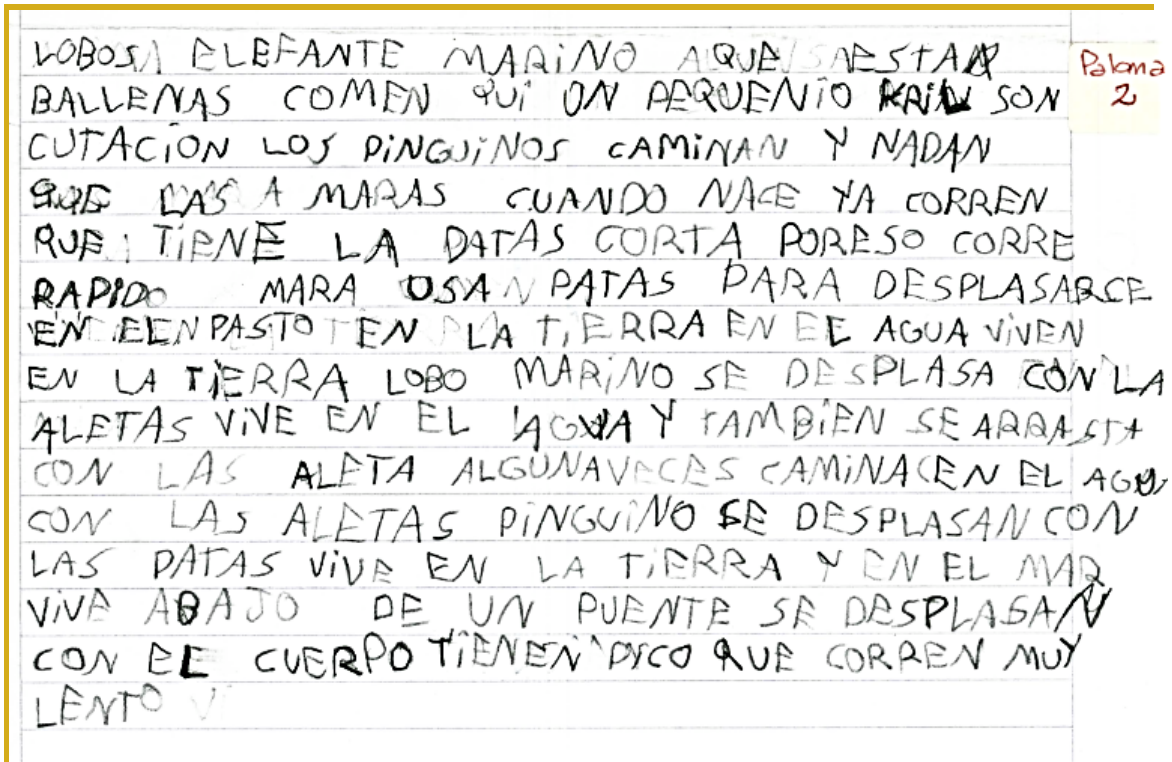 LOBOS ELEFANTE MARINO AQUE ESTAN
BALLENAS COMEN QUI ON PEQUENIO KRIL SON
CUTACION LOS PINGUINOS CAMINAN Y NADAN
QUE LAS A MARAS CUANDO NACE YA CORREN
QUE TIENE LA PATAS CORTA PORESO CORRE
RAPIDO MARA USAN PATAS PARA DESPLASARCE
EN EL PASTO EN LA TIERRA EN EL AGUA VIVEN
EN LA TIERRA LOBO MARINO SE DESPLASA CON LA
ALETAS VIVE EN EL AGUA Y TAMBIEN SE ARRASTA
CON LAS ALETA ALGUNAVECES CAMINA EN EL AGUA
CON LAS ALETAS PINGUINO SE DESPLASAN CON
LAS PATAS VIVE EN LA TIERRA Y EN EL MAR
VIVE ABAJO DE UN PUENTE SE DESPLASAN
CON EL CUERPO TIENEN PICO QUE CORREN MUY
LENTO
Paloma
2